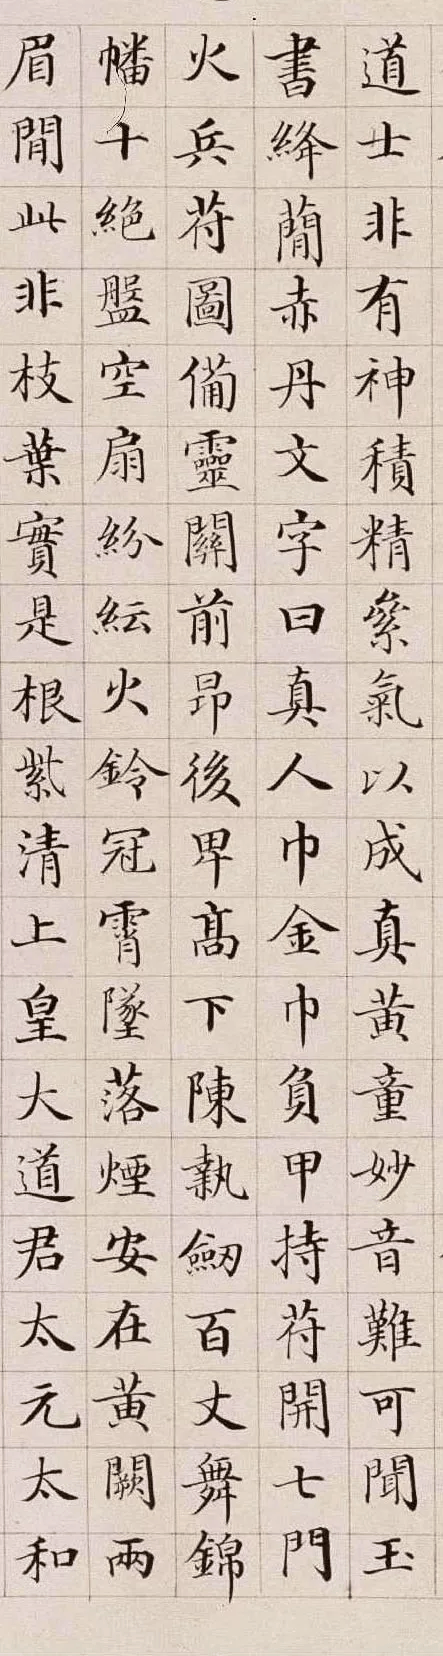 道士非有神積精絫氣以成真黃童妙音難可聞玉
書絳蕳赤丹文字曰真人巾金巾負甲持苻開七門
火兵苻圖備靈關前昂後卑高下陳執劔百丈舞錦
幡十絕盤空扇紛紜火鈴冠霄墜落煙安在黃闕兩
眉間此非枝葉實是根紫清上皇大道君太元太和